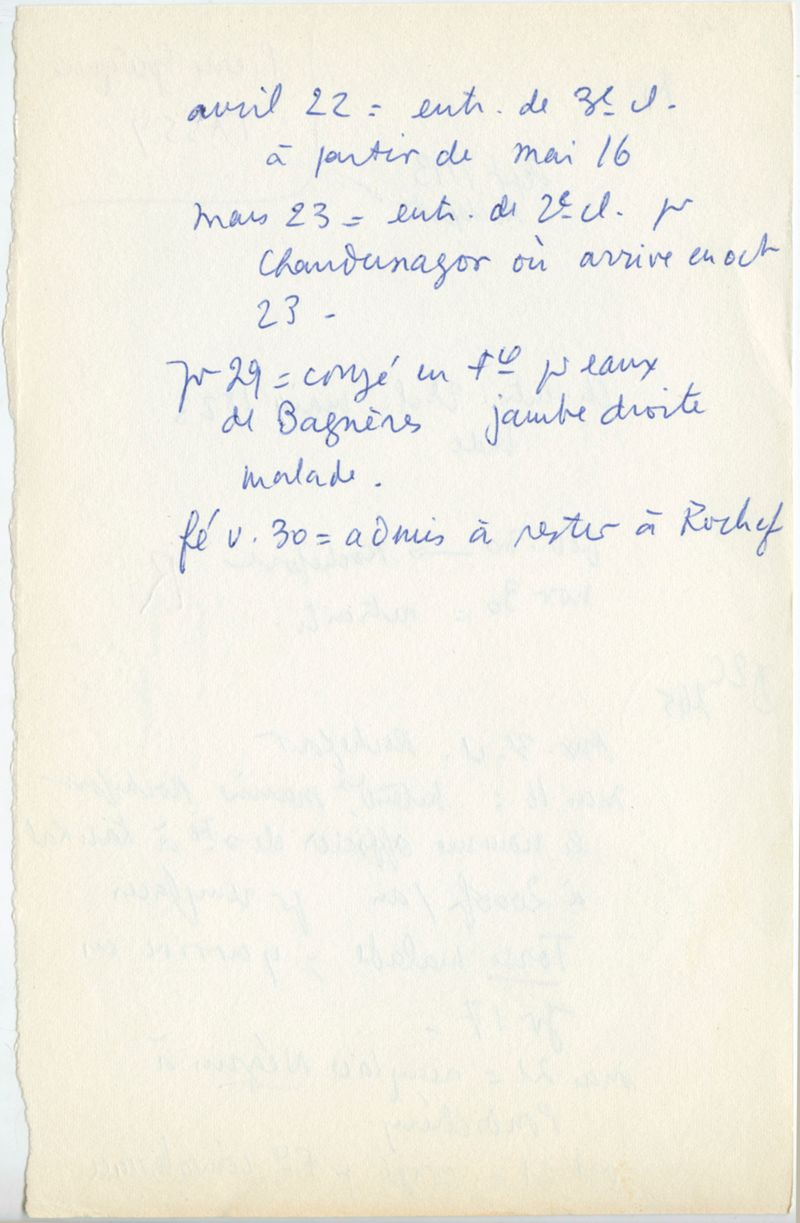 avril 22 = entr. de 3e cl.
à partir de mai 16
mars 23 = entr. de 2e cl. pr
Chandernagor où arrive en oct
23 -
jr 29 = congé en pr eaux
de Bagnères jambe droite
malade.
fév. 30 = admis à rester à Rochef